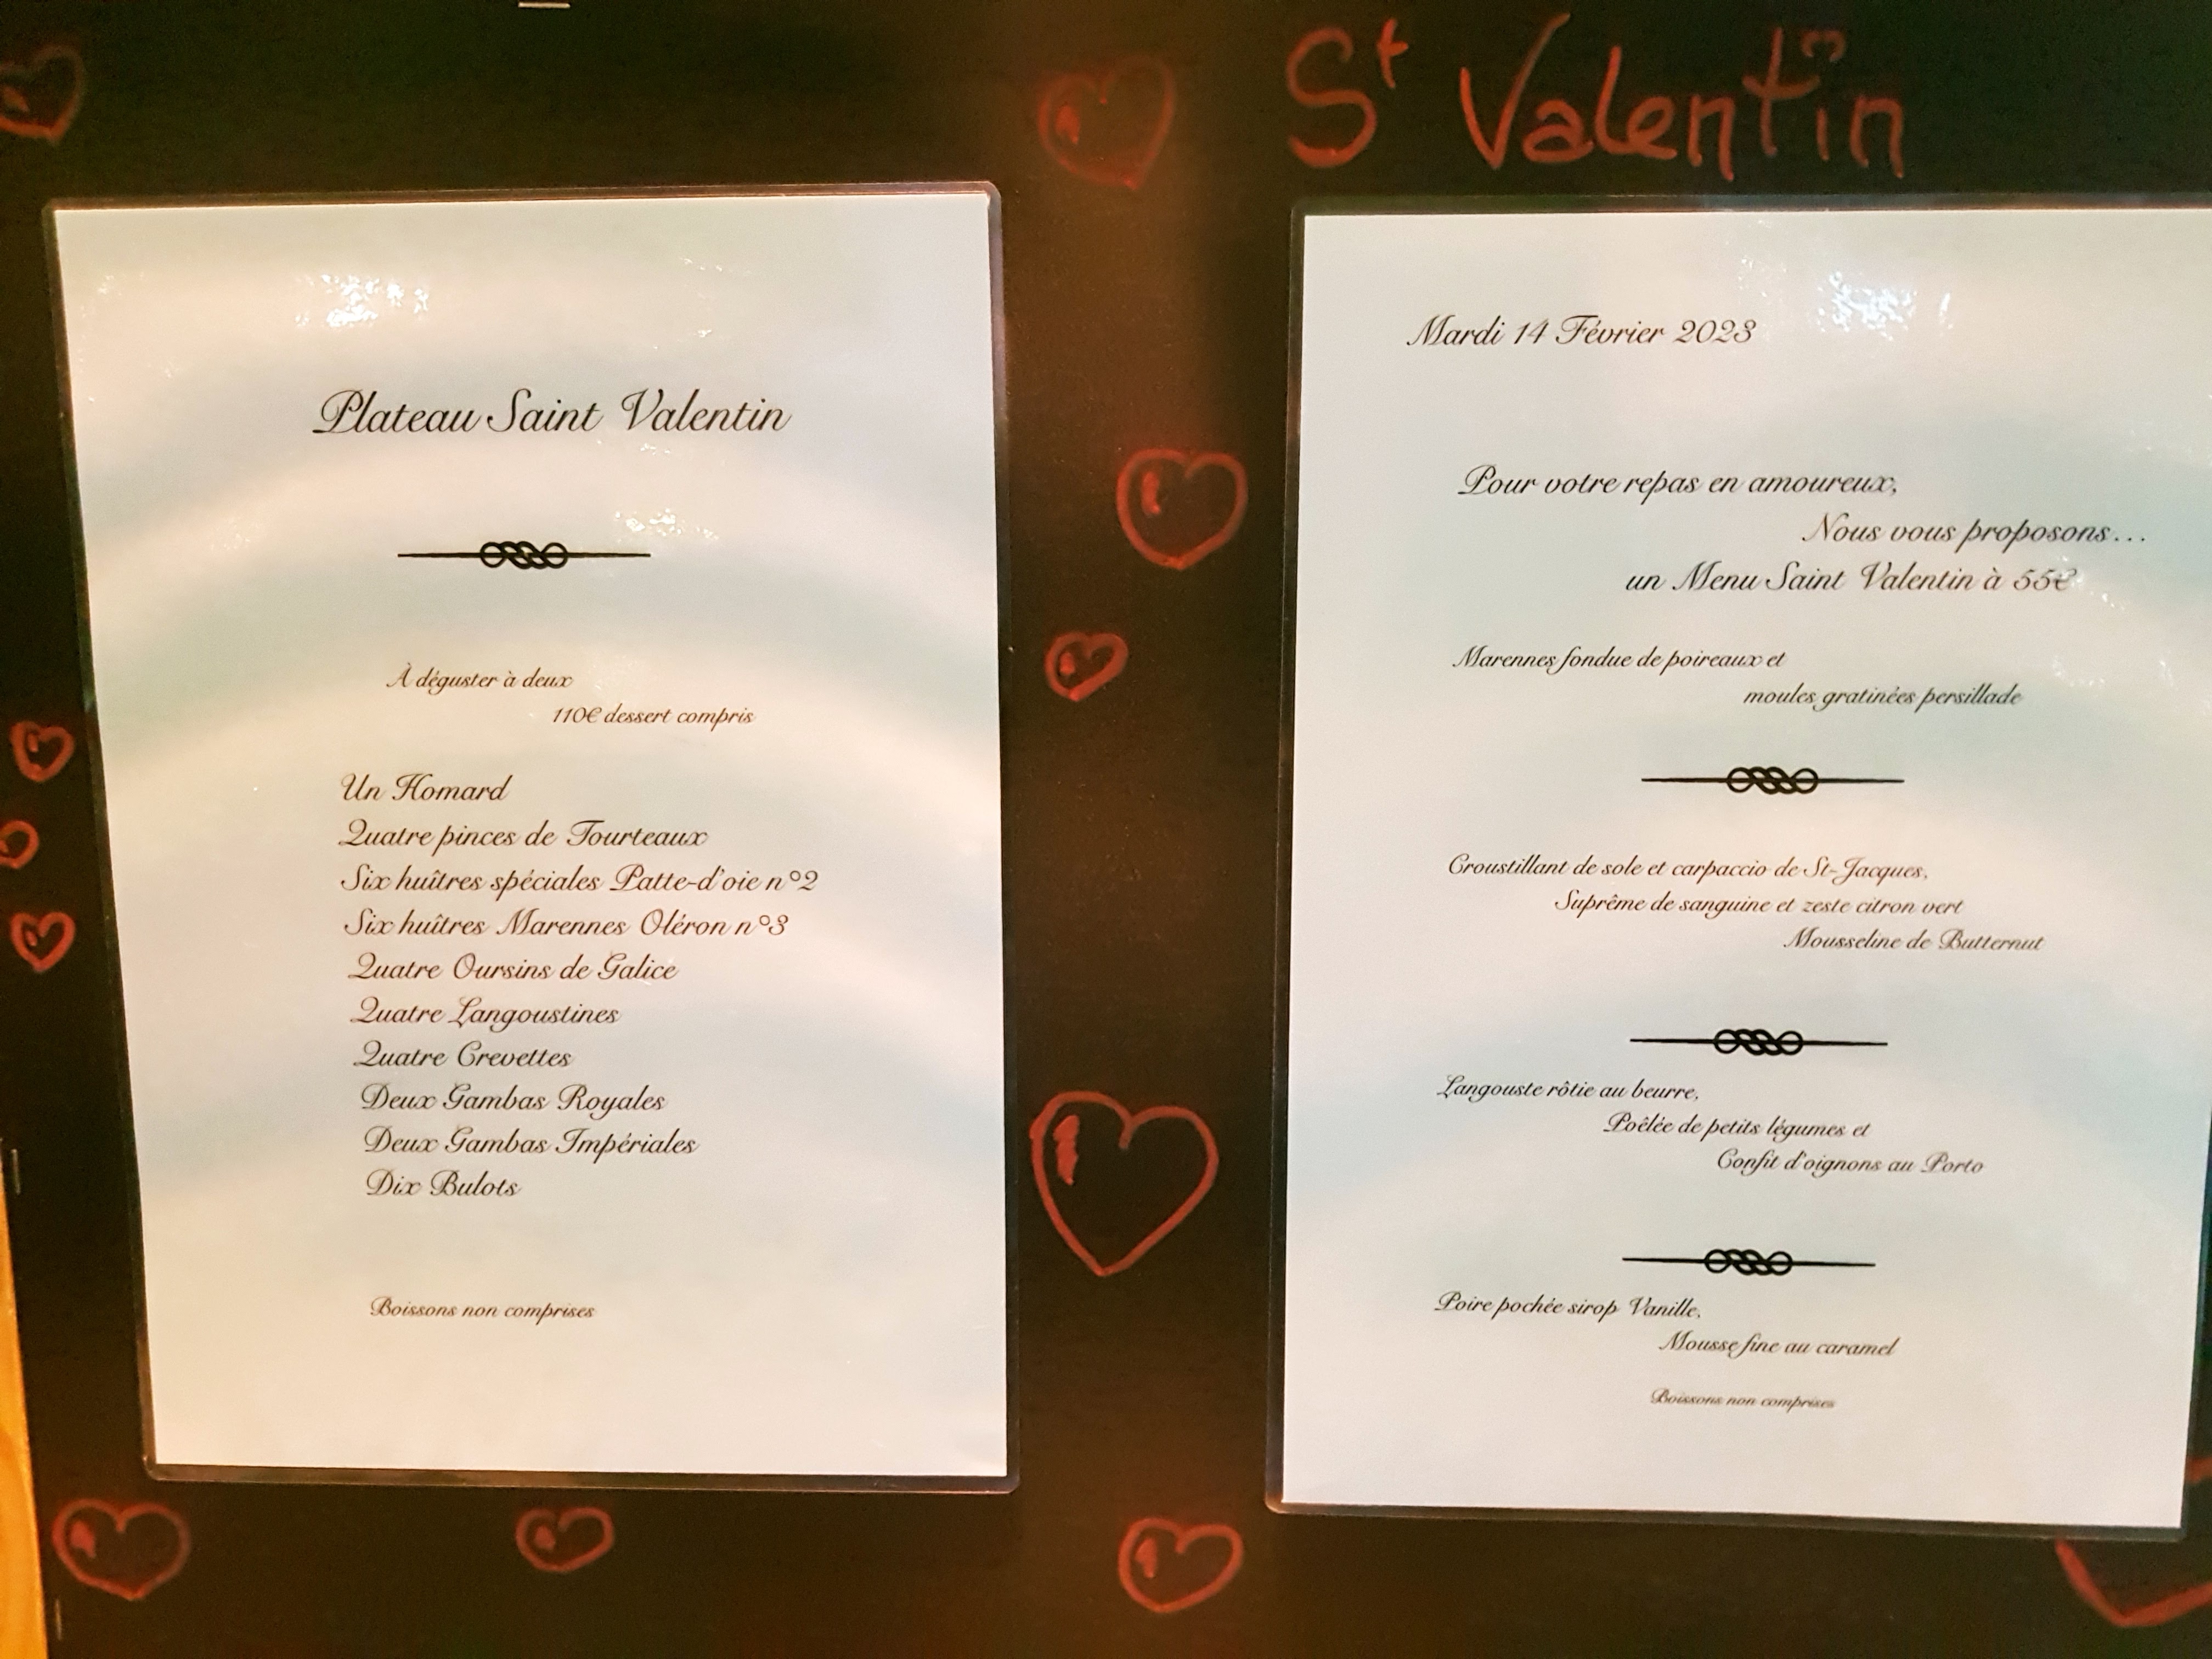 St Valentin
Plateau Saint Valentin
À déguster à deux
110€ dessert compris
Un Homard
Quatre pinces de Tourteaux
Six huîtres spéciales Patte-d'oie n°2
Six huîtres Marennes Oléron n°3
Quatre Oursins de Galice
Quatre Langoustines
Quatre Crevettes
Deux Gambas Royales
Deux Gambas Impériales
Dix Bulots
Boissons non comprises
Mardi 14 Février 2023
Pour votre repas en amoureux,
Nous vous proposons...
un Menu Saint Valentin à 55€
Marennes fondue de poireaux et
moules gratinées persillade
Croustillant de sole et carpaccio de St-Jacques,
Suprême de sanguine et zeste citron vert
Mousseline de Butternut
Langouste rôtie au beurre,
Poêlée de petits légumes et
Confit d'oignons au Porto
Poire pochée sirop Vanille,
Mousse fine au caramel
Boissons non comprises